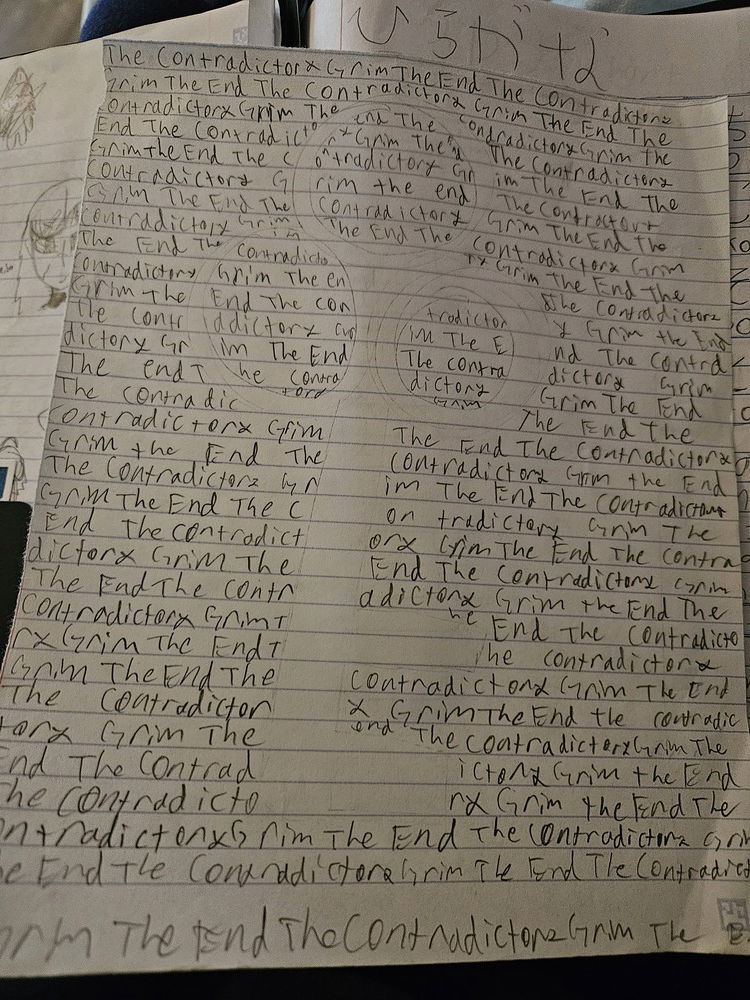 ひらがな
The Contradictory Grim The End The Contradictory
Grim The End The Contradictory Grim The End The
ontradictory Grim The end The Contradictory Grim The
End The Contradicto ry Grim The The Contradictory
Grim The End The C ontradictory Gr im The End The
Contradictory G rim the end The Contradictory
Grim The End The Contradictory Grim The End The
contraddictory Grim The End The Contradictory Grim
The End The Contradicto ry Grim The End The
Contradictory Grim The en The Contradictory
Grim The End The con tradictor y Grim the End
The Contr addictory Gr im The E nd The Contrd
dictory Gr im The End The contra dictory Grim
The end T he contra dictory Grim The End
The contradic tory Grim The End The
Contradictory Grim The End The Contradictory
Grim the End The Contradictory Grim the End
The Contradictory Gr im The End The Contradictory
Grim The End The C on tradictory Grim The
End The Contradict ory Grim The End The Contra
dictory Grim The End The Contradictory Grim
The End The Contr adictory Grim the End The
Contradictory Grim T he End The Contradicto
ry Grim The End T he contradictory
Grim The End The Contradictory Grim The End
The Contradictor y Grim The End the contradic
tory Grim The end The Contradictory Grim The
End The Contrad ictory Grim the End
he Contradicto ry Grim the End The
ntradictory Grim The End The Contradictory Grim
e End The Contradictory Grim The End The Contradict
rim The End The Contradictory Grim The E